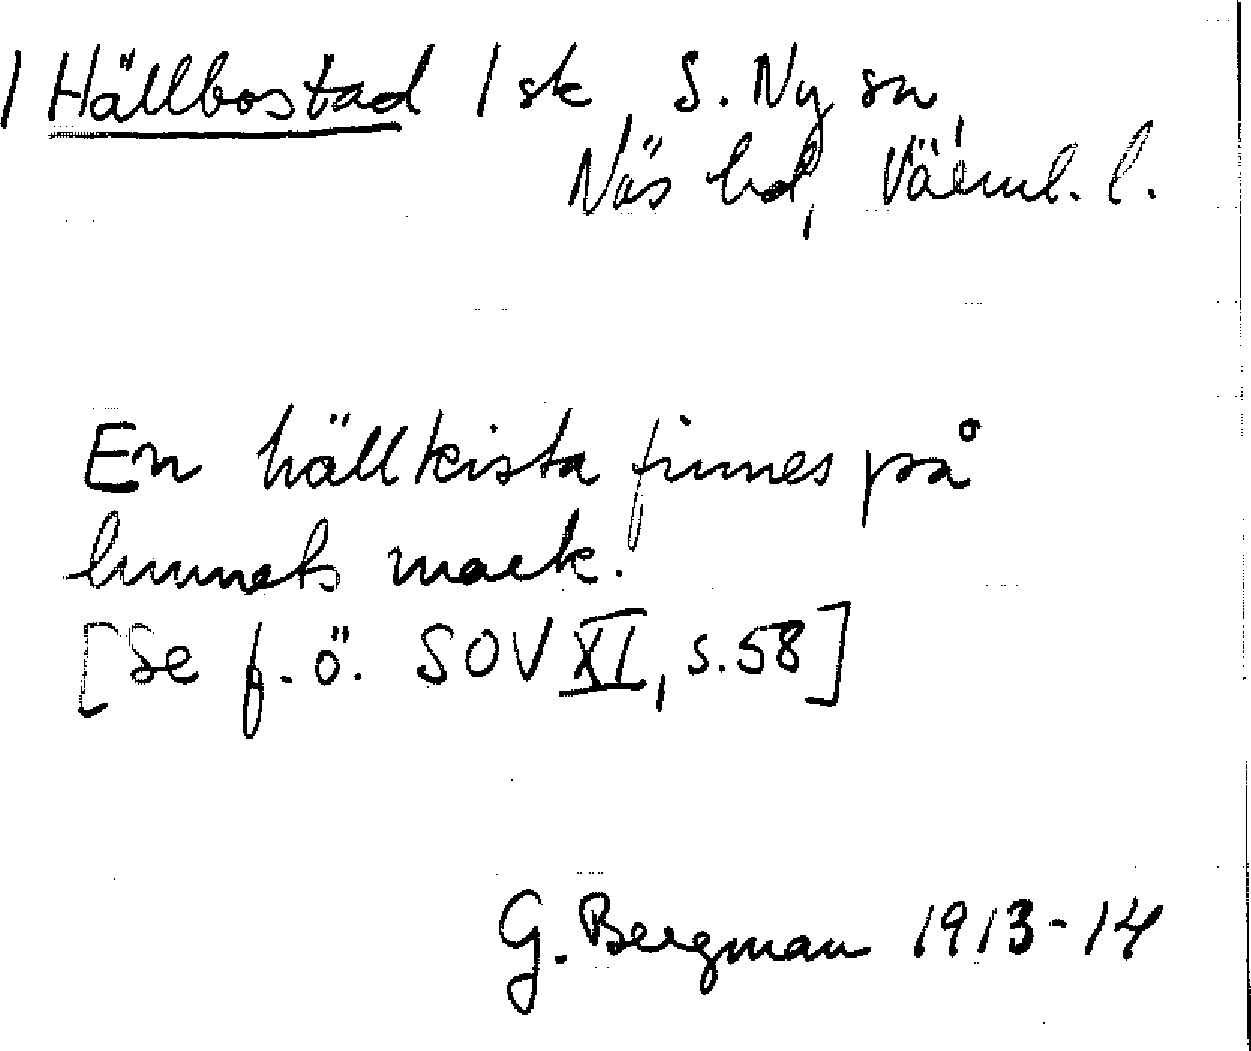 / Hällbostad / sk S. Ny sn,
Näs hd, Värml. l.
En hällkista finnes på
hemmets mark.
[Se f. ö. SOV XI, s. 58]
G. Bergman 1913-14